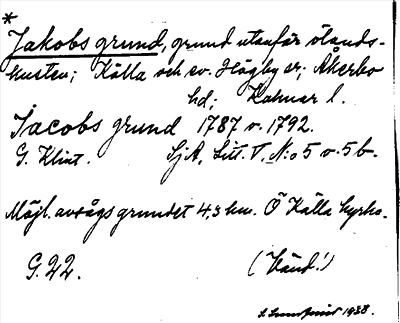 *
Jakobs grund, grund utanför ölands-
kusten; Källa och ev. Högby sr; Åkerbo
hd; Kalmar l.
Jacobs grund 1787 o. 1792.
G. Klint. SjA, Litt. V, N:o 5 o. 5 b.
Möjl. avsågs grundet 4,3 km. Ö Källa kyrka.
G. 22. (Vänd!)
1938.